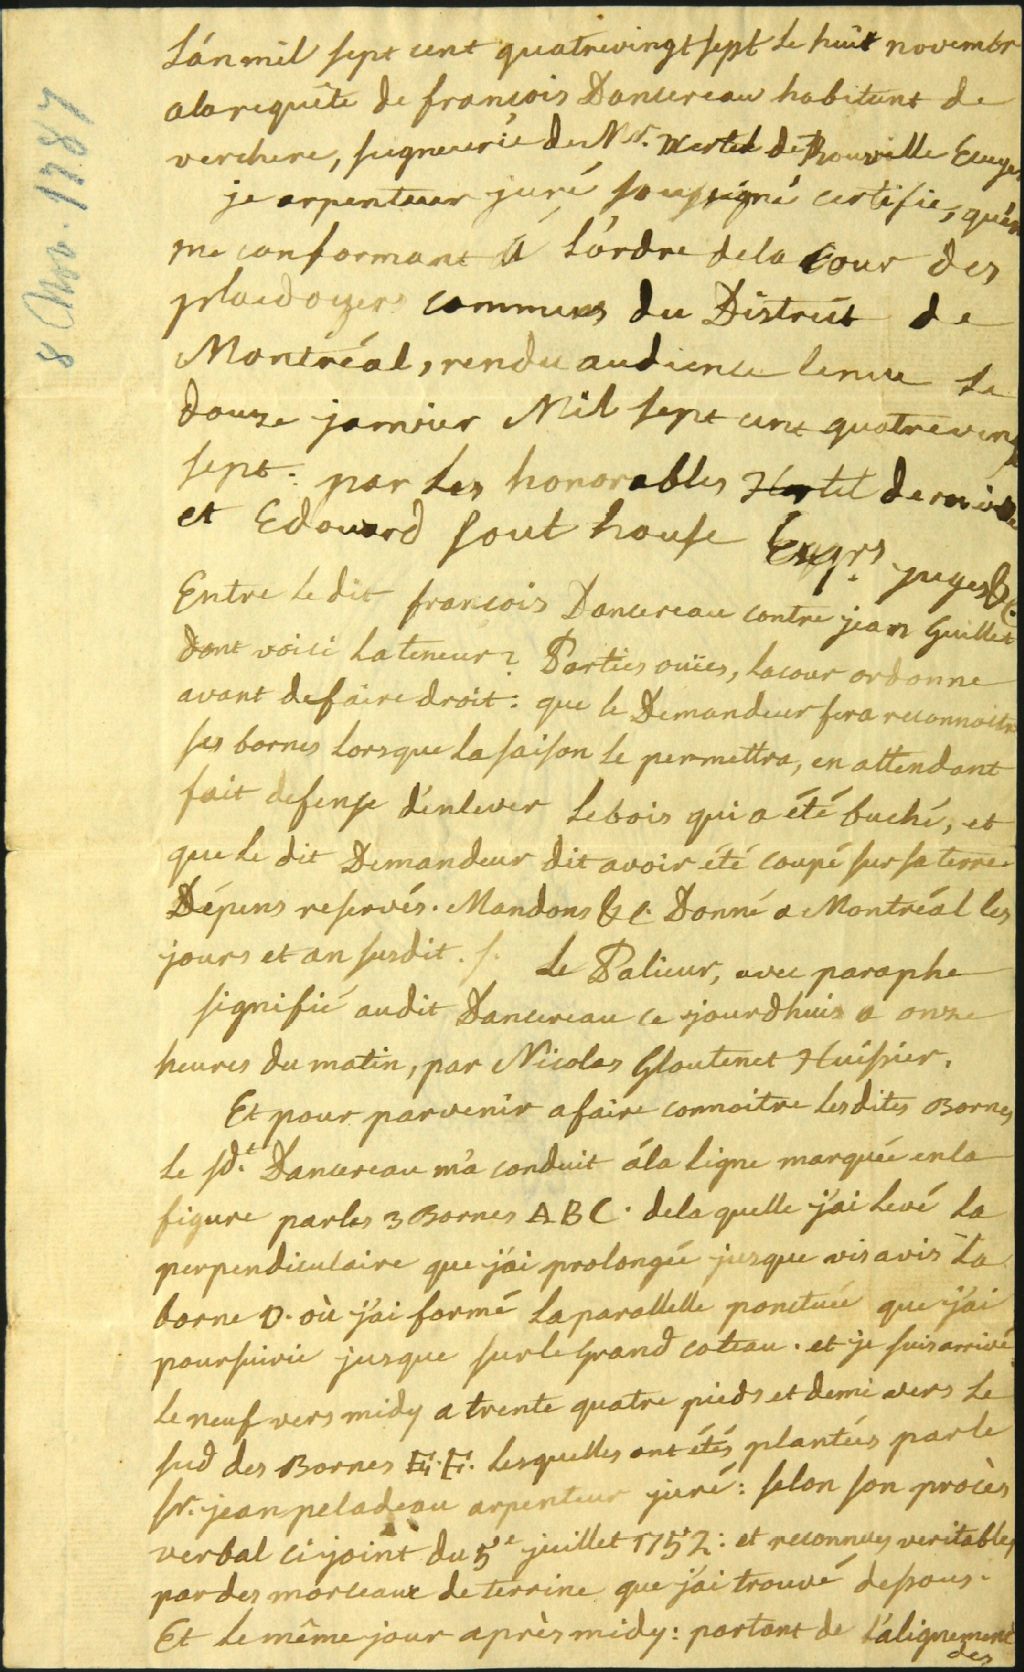 8 Nov. 1787
L'án mil sept cent quatrevingt sept le huit novembr
a la requête de françois Dancereau habitant de
verchere, seigneurie de Mr. Hertel de Rouville Ecuyer
je arpenteur juré soussigné certifie, qu'en
me conformant á L'órdre de la Cour des
plaedoyers communs du District de
Montréal, rendu audience tenue Le
douze janvier Mil sept cent quatreving
sept. par Les honorables Hertel de rouville
et Edouard sout house Eqrs juges &c.
Entre Le dit françois Dancereau contre jean Guillet
dont voici La teneur? Parties ouïes, La cour ordonne
avant de faire droit: que le Demandeur fera reconnoitre
ses bornes Lorsque La saison Le permettra, en attendant
fait defense d'enlever Le bois qui a été buché, et
que Le dit Demandeur dit avoir été coupé sur sa terre
Dépens reservés. Mandons &c. Donné a Montréal les
jours et an susdit. /. Le Palieur, avec paraphe
signifié audit Dancereau ce jourdhuis a onze
heures du matin, par Nicolas Gloutenet Huissier.
Et pour parvenir a faire connoitre Lesdites Bornes
Le sdt. Dancereau m'a conduit á la Ligne marquée en la
figure par les 3 Bornes A B C. de la quelle j'ai Levé La
perpendiculaire que j'ai prolongée jusque vis avis La
borne D. où j'ai formé La parallelle ponctuée que j'ai
poursuivie jusque sur le Grand coteau. et je suis arrivé
Le neuf vers midy a trente quatre pieds et demi vers Le
sud des Bornes E. F. Lesquelles ont étés plantées par le
sr. jean peladeau arpenteur juré: selon son procès
verbal ci joint du 5e juillet 1752: et reconnues veritables
par des morceaux de terrine que j'ai trouvé dessous.
Et Le même jour après midy: partant de L'alignement
des